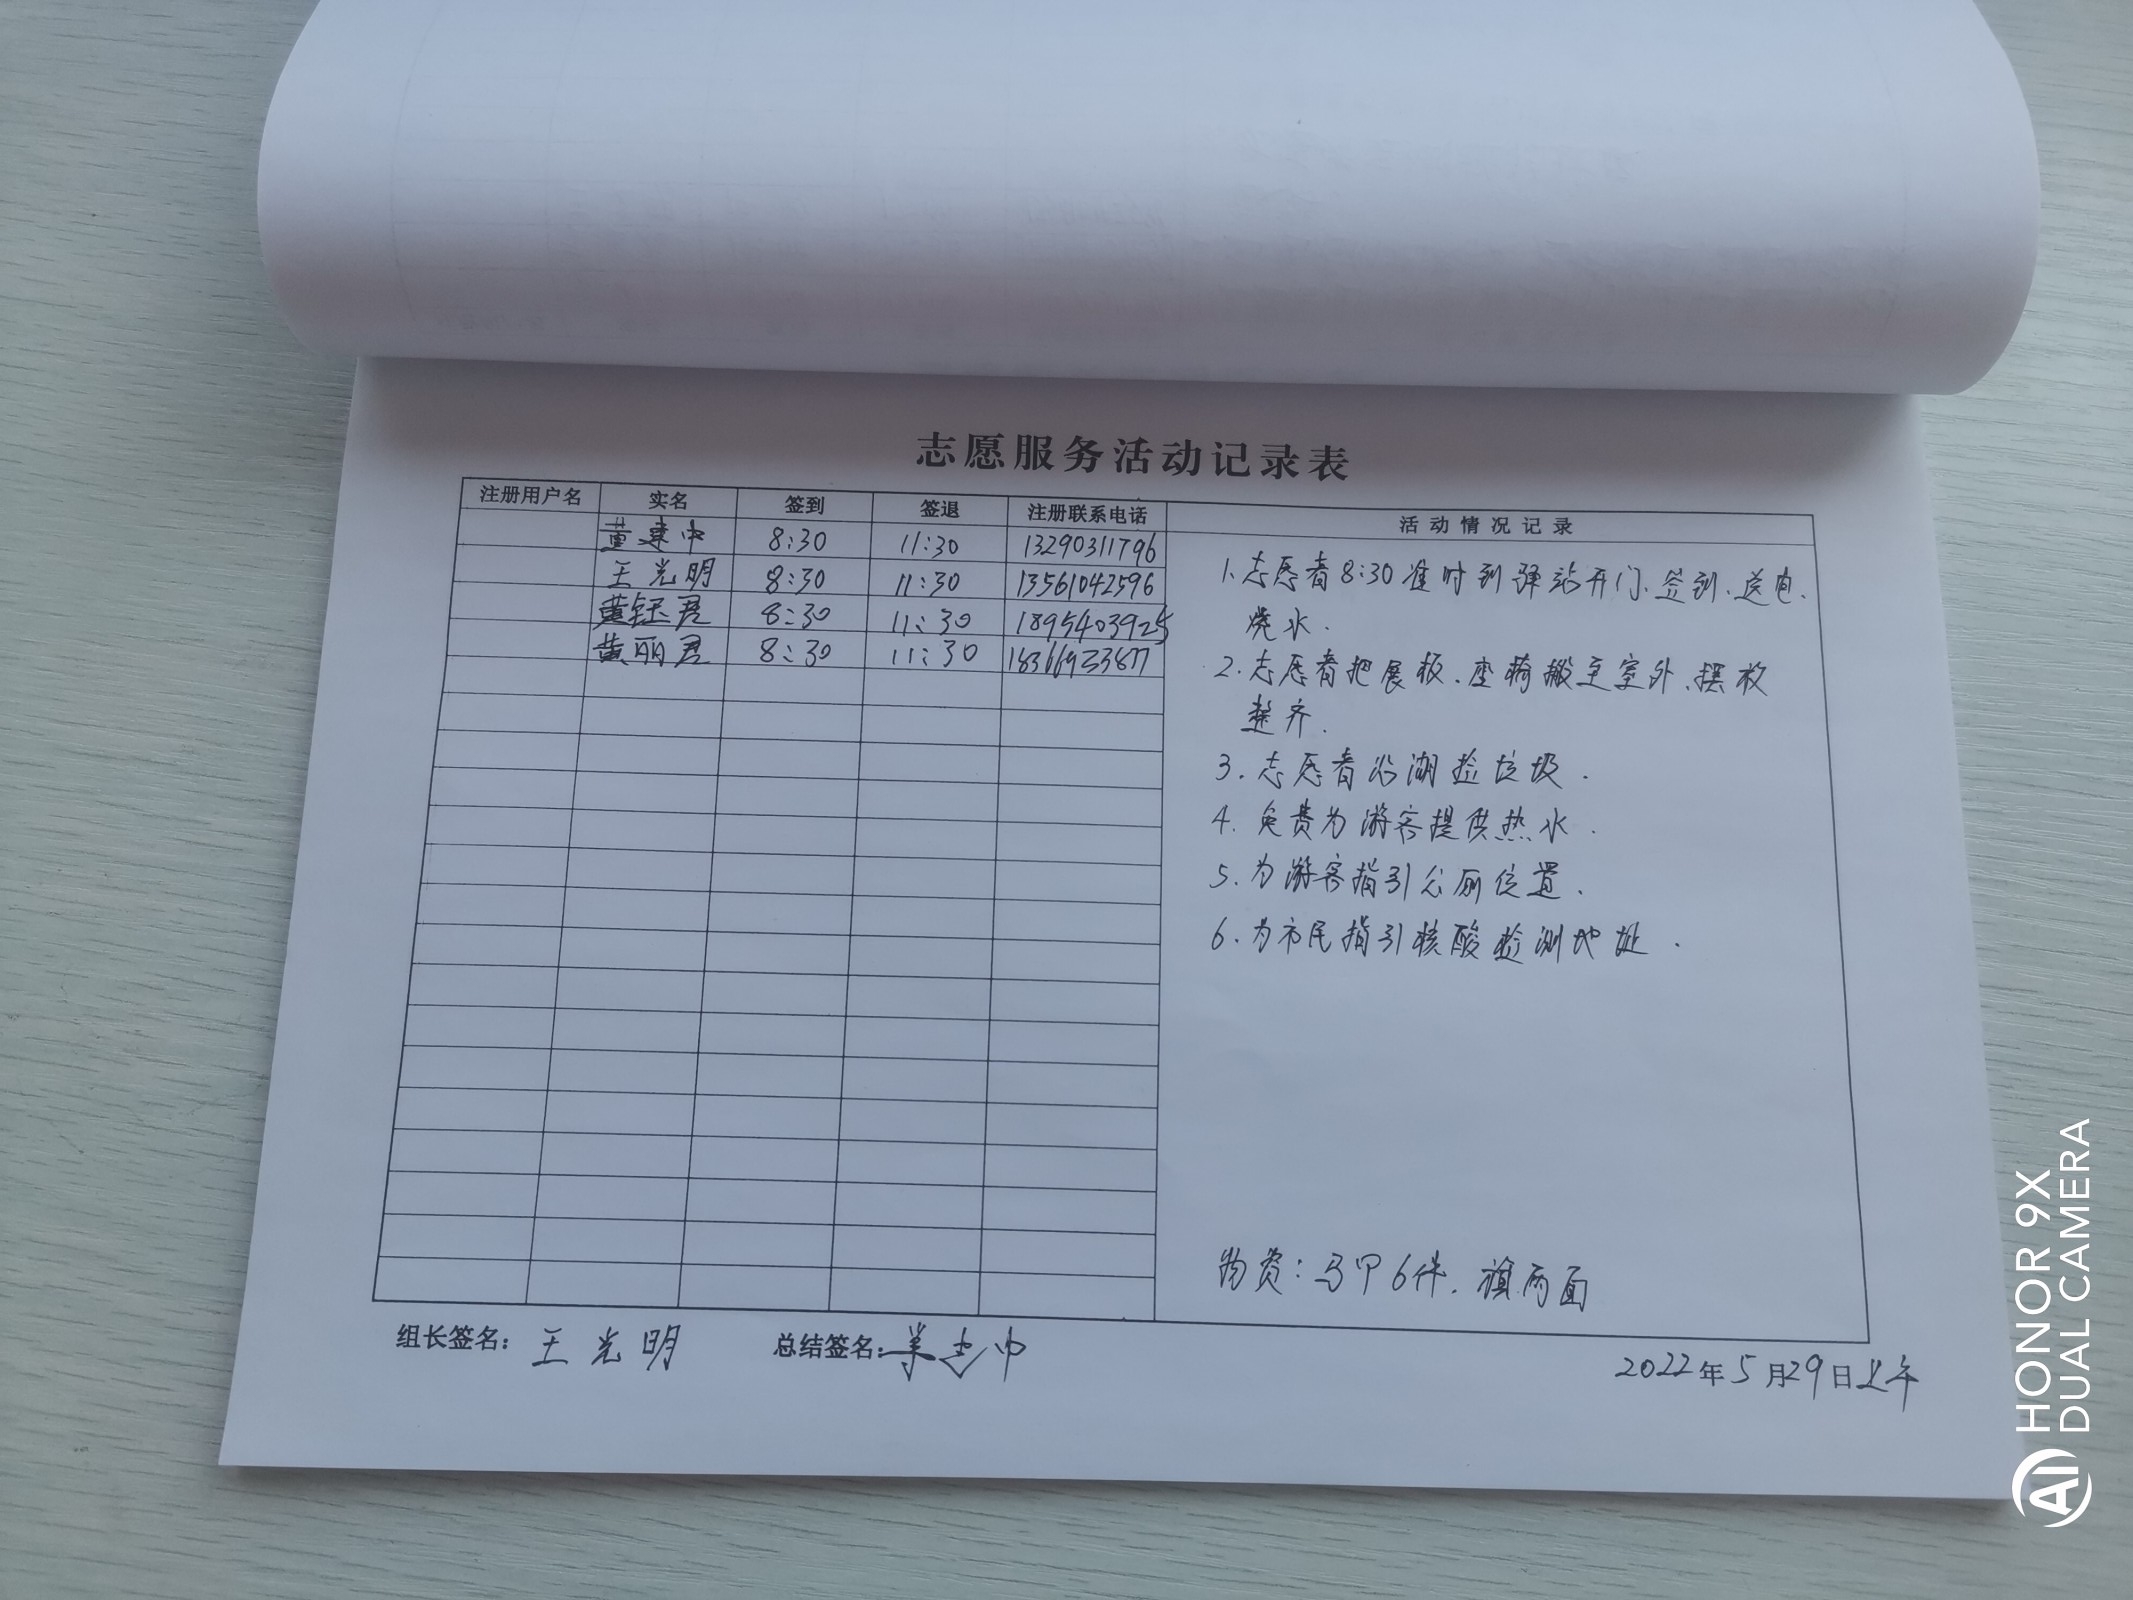 志愿服务活动记录表
注册用户名 实名 签到 签退 注册联系电话 活动情况记录
董建中 8:30 11:30 13290311796
王光明 8:30 11:30 13561042596
黄钰君 8:30 11:30 1895403925
黄丽君 8:30 11:30 18366923877
1.志愿者8:30准时到驿站开门、签到、送电、
烧水.
2.志愿者把展板、座椅搬至室外、摆放
整齐.
3.志愿者沿湖捡垃圾.
4.免费为游客提供热水.
5.为游客指引公厕位置.
6.为市民指引核酸检测地址.
物资:马甲6件.旗两面
组长签名：王光明 总结签名：
2022年5月29日上午
HONOR 9X
DUAL CAMERA
AI